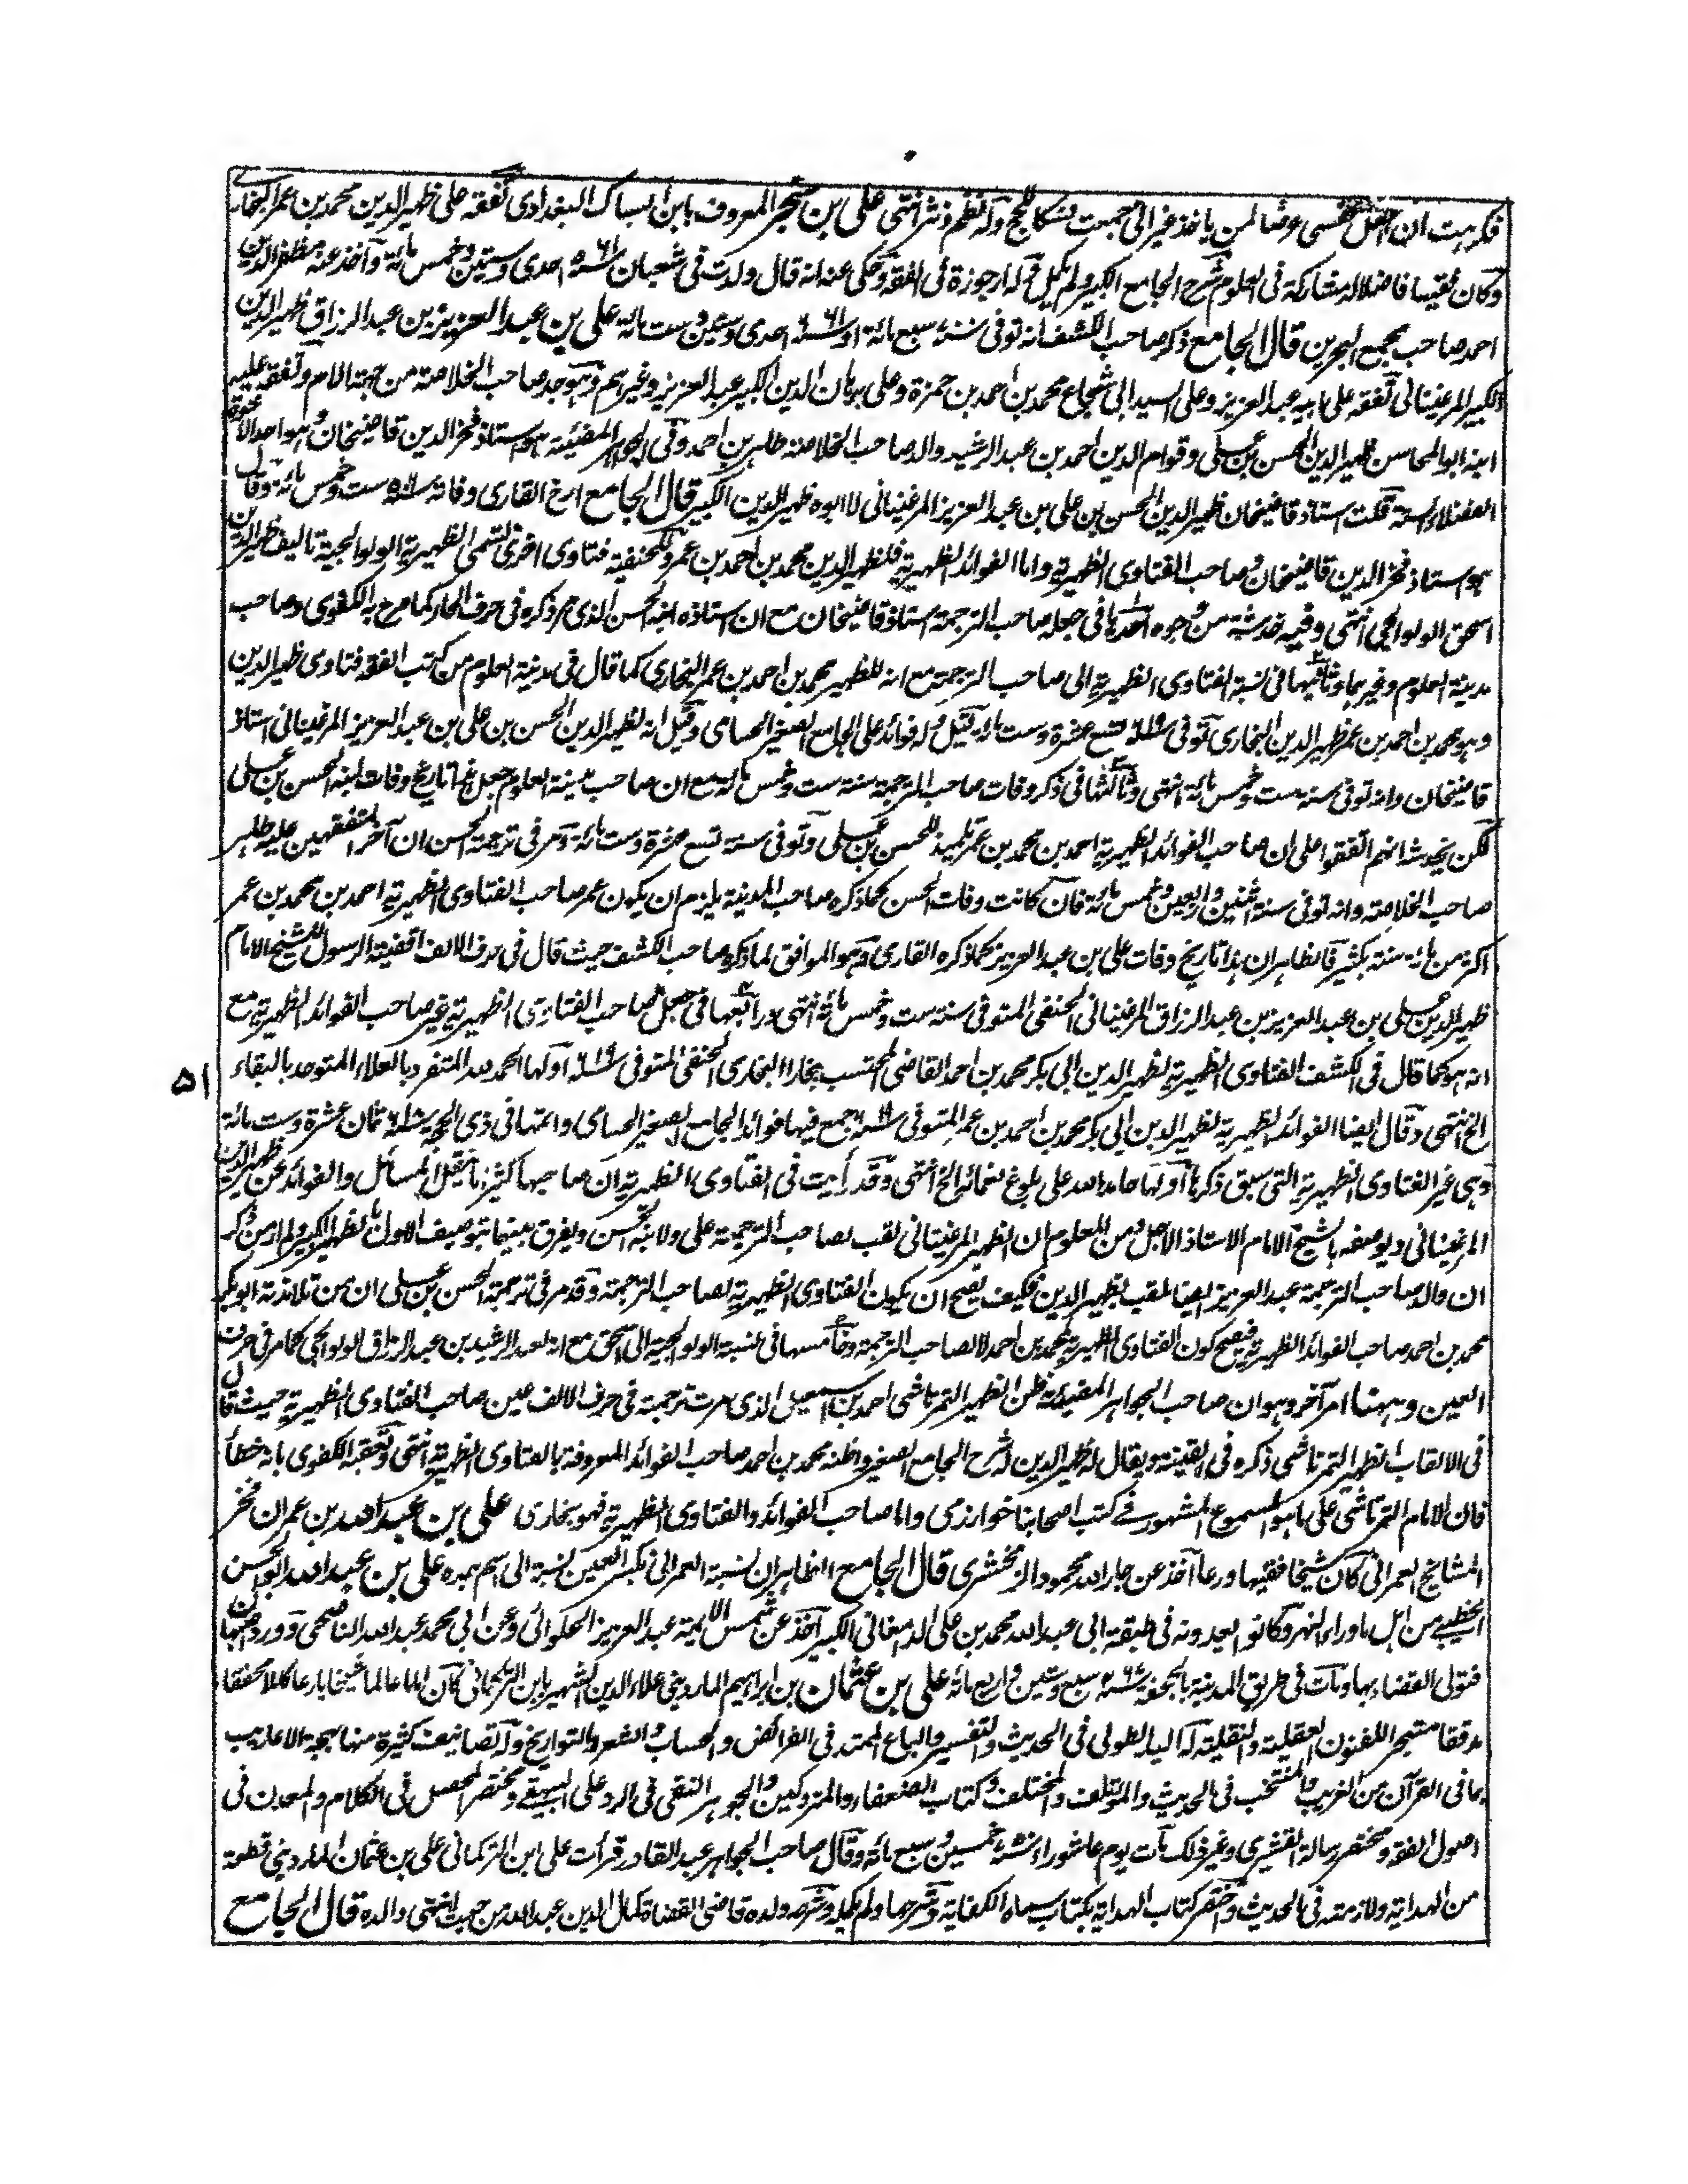 فكرهت ان اجعل نفسى عرضا لمن ياخذ غير انى جمعت منسكا للحج وله نظم ونثر انتهى على بن سنجر المعروف بابن السباك البغدادى تفقه على ظهير الدين محمد بن عمر البخارى
وكان فقيها فاضلا له مشاركة فى العلوم شرح الجامع الكبير ولم يكمل وله ارجوزة فى الفقه وحكى عنه انه قال ولدت فى شعبان سنة ٦١ه احدى وستين وخمس مائة وآخذ عنه مظفر الدين
احمد صاحب مجمع البحرين قال الجامع ذكر صاحب الكشف انه توفى سنة سبع مائة او سنة ٦٦١ احدى وستين وست مائة على بن عبد العزيز بن عبد الرزاق ظهير الدين
الكبير المرغينانى تفقه على ابيه عبد العزيز وعلى السيد ابى شجاع محمد بن احمد بن حمزة وعلى برهان الدين الكبير عبد العزيز وغيرهم وهو جد صاحب الخلاصة من جهة الام وتفقه عليه
ابنه ابو المحاسن ظهير الدين الحسن بن على وقوام الدين احمد بن عبد الرشيد والد صاحب الخلاصة طاهر بن احمد وفى الجواهر المضيئة هو استاذ فخر الدين قاضيخان وهو احد الاخوة
الفضلاء الستة قلت استاذ قاضيخان ظهير الدين الحسن بن على بن عبد العزيز المرغينانى لا ابوه ظهير الدين الكبير قال الجامع ارخ القارى وفاته سنة ٥٠٦ ست وخمس مائة وقال
هو استاذ فخر الدين قاضيخان وصاحب الفتاوى الظهيرية واما الفوائد الظهيرية فلظهير الدين محمد بن احمد بن عمر وللحنفية فتاوى اخرى تسمى الظهيرية الولوالجية تاليف ظهير الدين
اسحق الولوالجى انتهى وفيه خدشة من وجوه احدها فى جعله صاحب الترجمة استاذ قاضيخان مع ان استاذه ابنه الحسن الذى مر ذكره فى حرف الحاء كما صرح به الكفوى وصاحب
مدينة العلوم وغيرهما وثانيها فى نسبة الفتاوى الظهيرية الى صاحب الترجمة مع انه للظهير محمد بن احمد بن عمر البخارى كما قال فى مدينة العلوم من كتب الفقه فتاوى ظهير الدين
وهو محمد بن احمد بن عمر ظهير الدين البخارى توفى سنة ٦١٩ تسع عشرة وست مائة قيل وله فوائد على الجامع الصغير الحسامى وقيل انه لظهير الدين الحسن بن على بن عبد العزيز المرغينانى استاذ
قاضيخان وانه توفى سنة ست وخمس مائة انتهى وثالثها فى ذكر وفات صاحب الترجمة سنة ست وخمس مائة مع ان صاحب مدينة العلوم جعل هذا تاريخ وفات ابنه الحسن بن على
لكن يخدشه انهم اتفقوا على ان صاحب الفوائد الظهيرية احمد بن محمد بن عمر تلميذ للحسن بن على وتوفى سنة تسع عشرة وست مائة ومر فى ترجمة الحسن ان آخر المتفقهين عليه طاهر
صاحب الخلاصة وانه توفى سنة اثنين واربعين وخمس مائة فان كانت وفات الحسن كما ذكره صاحب المدينة يلزم ان يكون عمر صاحب الفتاوى الظهيرية احمد بن محمد بن عمر
اكثر من مائة سنة بكثير فالظاهر ان هذا تاريخ وفات على بن عبد العزيز كما ذكره القارى وهو الموافق لما ذكره صاحب الكشف حيث قال فى حرف الالف اقضية الرسول للشيخ الامام
ظهير الدين على بن عبد العزيز بن عبد الرزاق المرغينانى الحنفى المتوفى سنة ست وخمس مائة انتهى ورابعها فى جعل صاحب الفتاوى الظهيرية غير صاحب الفوائد الظهيرية مع
انه هو كما قال فى الكشف الفتاوى الظهيرية لظهير الدين ابى بكر محمد بن احمد القاضى المحتسب ببخارا البخارى الحنفى المتوفى سنة ٦١٩ اولها الحمد لله المتفرد بالعلاء المتوحد بالبقاء
٥١
الخ انتهى وقال ايضا الفوائد الظهيرية لظهير الدين ابى بكر محمد بن احمد بن عمر المتوفى سنة ٦١٩ جمع فيها فوائد الجامع الصغير الحسامى واتمها فى ذى الحجة سنة ٦١٨ ثمان عشرة وست مائة
وهى غير الفتاوى الظهيرية التى سبق ذكرها اولها حامدا لله على بلوغ نعمائه الخ انتهى وقد رأيت فى الفتاوى الظهيرية ان صاحبها كثيرا ما ينقل المسائل والفوائد عن ظهير الدين
المرغينانى ويوصفه بالشيخ الامام الاستاذ الاجل ومن المعلوم ان الظهير المرغينانى لقب لصاحب الترجمة على ولابنه الحسن ويفرق بينهما بتوصيف الاول بالظهير الكبير ولم ار من ذكر
ان والد صاحب الترجمة عبد العزيز ايضا لقب بظهير الدين فكيف يصح ان يكون الفتاوى الظهيرية لصاحب الترجمة وقد مر فى ترجمة الحسن بن على ان من تلامذته ابو بكر
محمد بن احمد صاحب الفوائد الظهيرية فيصح كون الفتاوى الظهيرية لمحمد بن احمد لا لصاحب الترجمة وخامسها فى نسبة الولوالجية الى اسحق مع انه لعبد الرشيد بن عبد الرزاق الولوالجى كما مر فى حرف
العين وههنا امر آخر وهو ان صاحب الجواهر المضيئة ظن الظهير التمرتاشى احمد بن اسمعيل الذى مرت ترجمته فى حرف الالف عين صاحب الفتاوى الظهيرية حيث قال
فى الالقاب الظهير التمرتاشى ذكره فى القنية ويقال له ظهير الدين له شرح الجامع الصغير واظنه محمد بن احمد صاحب الفوائد المعروفة بالفتاوى الظهيرية انتهى وتعقبه الكفوى بانه خطأ
فان الامام التمرتاشى على ما هو المسموع المشهور فى كتب اصحابنا خوارزمى واما صاحب الفوائد والفتاوى الظهيرية فهو بخارى على بن عبد الله بن عمران فخر
المشايخ العمرانى كان شيخا فقيها ورعا آخذ عن جار الله محمود الزمخشرى قال الجامع الظاهر ان نسبة العمرانى بكسر العين نسبة الى اسم جده على بن عبيد الله ابو الحسن
الخطيبى من اهل ماوراء النهر وكانوا يعدونه فى طبقة ابى عبد الله محمد بن على الدامغانى الكبير آخذ عن شمس الائمة عبد العزيز الحلوائى وعن ابى محمد عبد الله الناصحى وورد اصبهان
فتولى القضاء بها ومات فى طريق المدينة بالجحفة سنة ٤٦٧ سبع وستين واربع مائة على بن عثمان بن ابراهيم الماردينى علاء الدين الشهير بابن التركمانى كان اماما عالما شيخا بارعا كاملا محققا
مدققا متبحرا للفنون العقلية والنقلية له اليد الطولى فى الحديث والتفسير والباع الممتد فى الفرائض والحساب والشعر والتواريخ وله تصانيف كثيرة منها بهجة الاعاريب
بما فى القرآن من الغريب والمنتخب فى الحديث والمؤتلف والمختلف وكتاب الضعفاء والمتروكين والجوهر النقى فى الرد على البيهقى ومختصر المحصل فى الكلام والمعدن فى
اصول الفقه ومختصر رسالة القشيرى وغير ذلك مات يوم عاشوراء سنة ٧٥٠ خمسين وسبع مائة وقال صاحب الجواهر عبد القادر قرأت على ابن التركمانى على بن عثمان الماردينى قطعة
من الهداية ولازمته فى الحديث واختصر كتاب الهداية بكتاب سماه الكفاية وشرحها ولم يكمله وشرحه ولده قاضى القضاة كمال الدين عبد الله من حيث انتهى والده قال الجامع